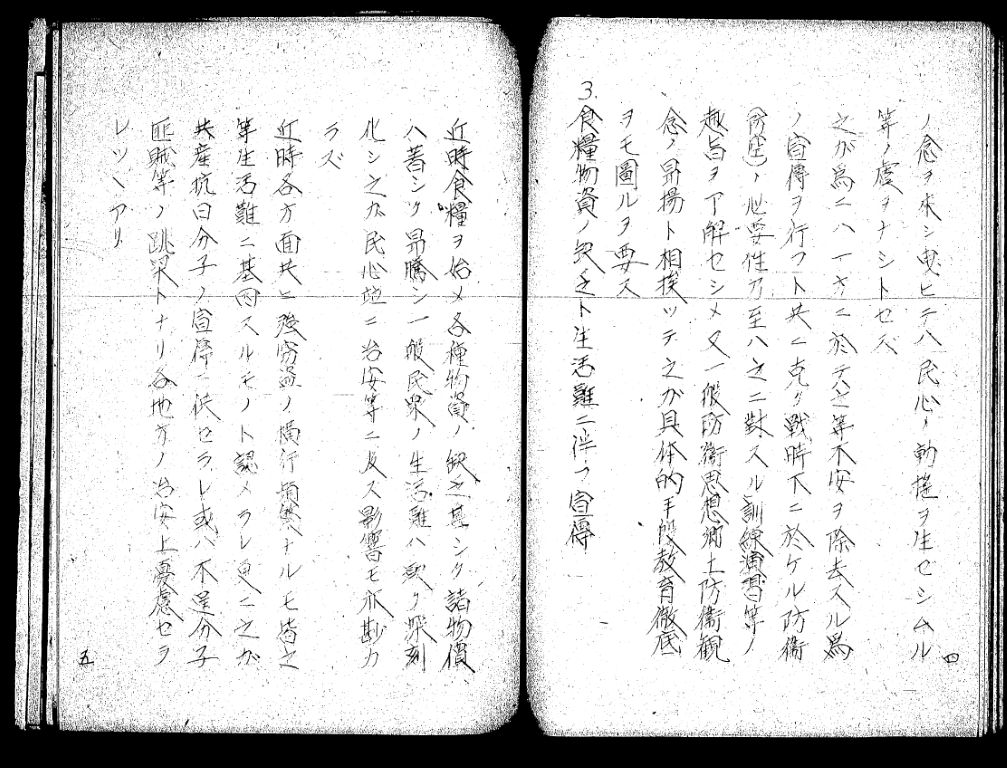 ノ念ヲ来シ曳ヒテハ民心ノ動揺ヲ生セシムル
等ノ虞ヲナシトセズ
之ガ為ニハ一方ニ於テハ之等不安ヲ除去スル為
ノ宣傳ヲ行フト共ニ克ク戦時下ニ於ケル防衛
(防空)ノ必要性乃至ハ之ニ對スル訓練演習等ノ
趣旨ヲ了解セシメ又一般防衛思想郷土防衛観
念ノ昂揚ト相挨ツテ之ガ具体的手段教育徹底
ヲモ圖ルヲ要ス
3.食糧物資ノ缺乏ト生活難ニ伴フ宣傳
四
近時食糧ヲ始メ各種物資ノ缺乏甚シク諸物價
ハ著シク昂騰シ一般民衆ノ生活難ハ漸ク深刻
化シ之ガ民心竝ニ治安等ニ及ス影響モ亦尠カ
ラズ
近時各方面共ニ強窃盗ノ横行頻繁ナルモ皆之
等生活難ニ基因スルモノト認メラレ更ニ之ガ
共産抗日分子ノ宣傳ニ供セラレ或ハ不逞分子
匪賊等ノ跳梁トナリ各地方ノ治安上憂慮セラ
レツヽアリ
五